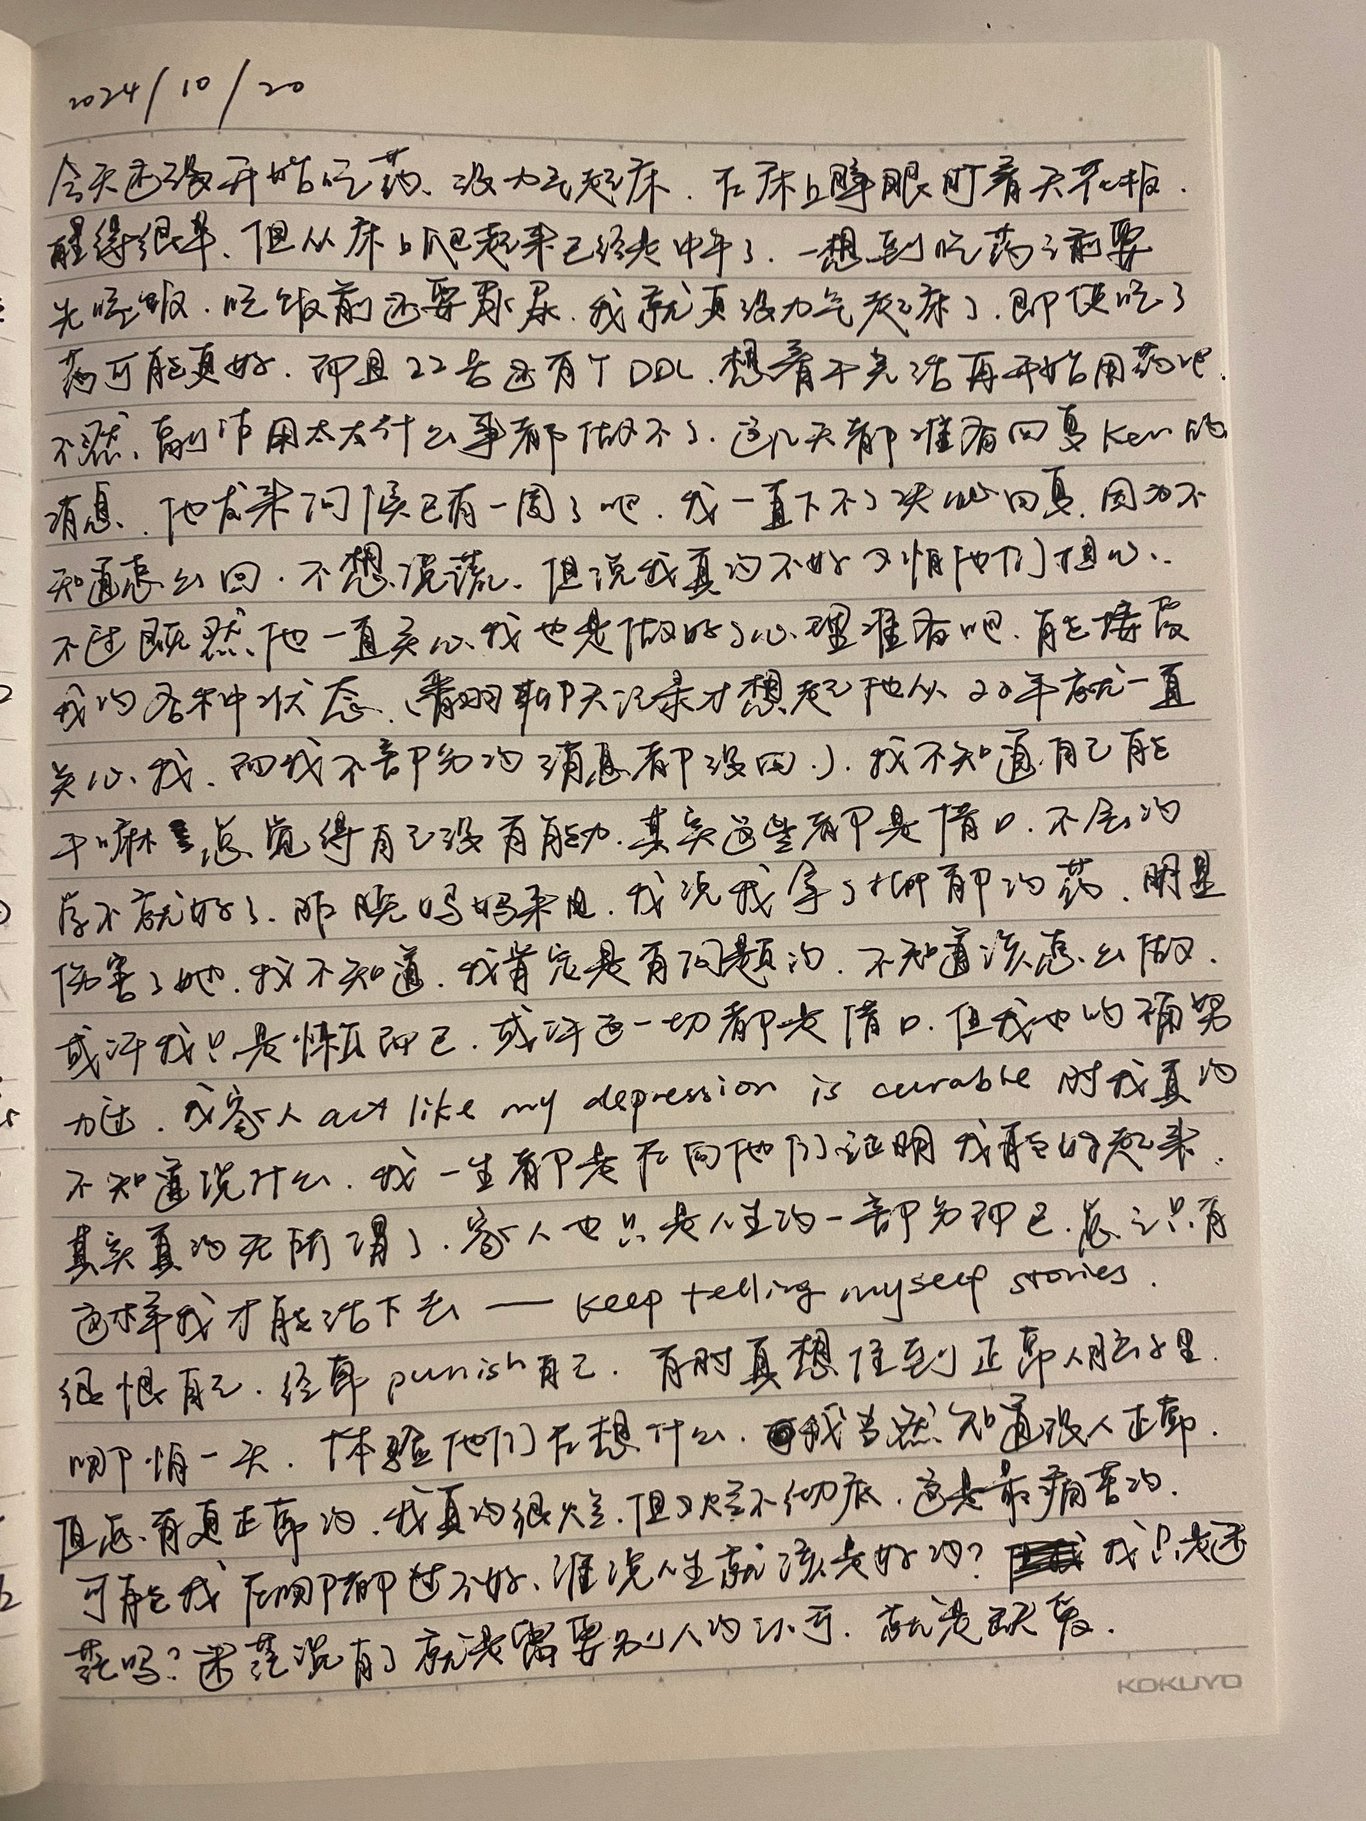 2024/10/20
今天还没开始吃药、没力气起床、在床上睁眼盯着天花板.
醒得很早、但从床上爬起来已经是中午了. 一想到吃药之前要
先吃饭. 吃饭前还要尿尿. 我就更没力气起床了. 即使吃了
药可能更好. 而且22号还有个DDL. 想着干完活再开始用药吧.
不然、副作用太大什么事都做不了. 这几天都准备回复Ken的
消息、他发来问候已有一周了吧. 我一直下不了决心回复. 因为不
知道怎么回. 不想说谎、但说我真的不好又怕他们担心..
不过既然他一直关心我也是做好了心理准备吧、能接受
我的各种状态、(翻聊天记录才想起他从20年就一直
关心我、而我大部分的消息都没回.)、我不知道自己能
干嘛 总觉得自己没有能力. 其实这些都是借口. 不会的
学不就好了、昨晚妈妈来电. 我说我拿了抑郁的药、明显
伤害了她. 我不知道. 我肯定是有问题的、不知道该怎么做.
或许我只是懒而已. 或许这一切都是借口. 但我也的确努
力过. 我家人act like my depression is curable 时我真的
不知道说什么. 我一生都是在向他们证明我能好起来.
其实真的无所谓了. 家人也只是人生的一部分而已. 总之只有
这样我才能活下去 — keep telling myself stories.
很恨自己. 经常punish自己. 有时真想住到正常人脑子里.
哪怕一天. 体验他们在想什么. 我当然知道没人正常.
但总有更正常的. 我真的很烂. 但又烂不彻底. 这是最痛苦的.
可能我在哪都过不好、谁说人生就该是好的? 我只是迷
茫吗? 迷茫说白了就是需要别人的认可. 就是缺爱.
KOKUYO